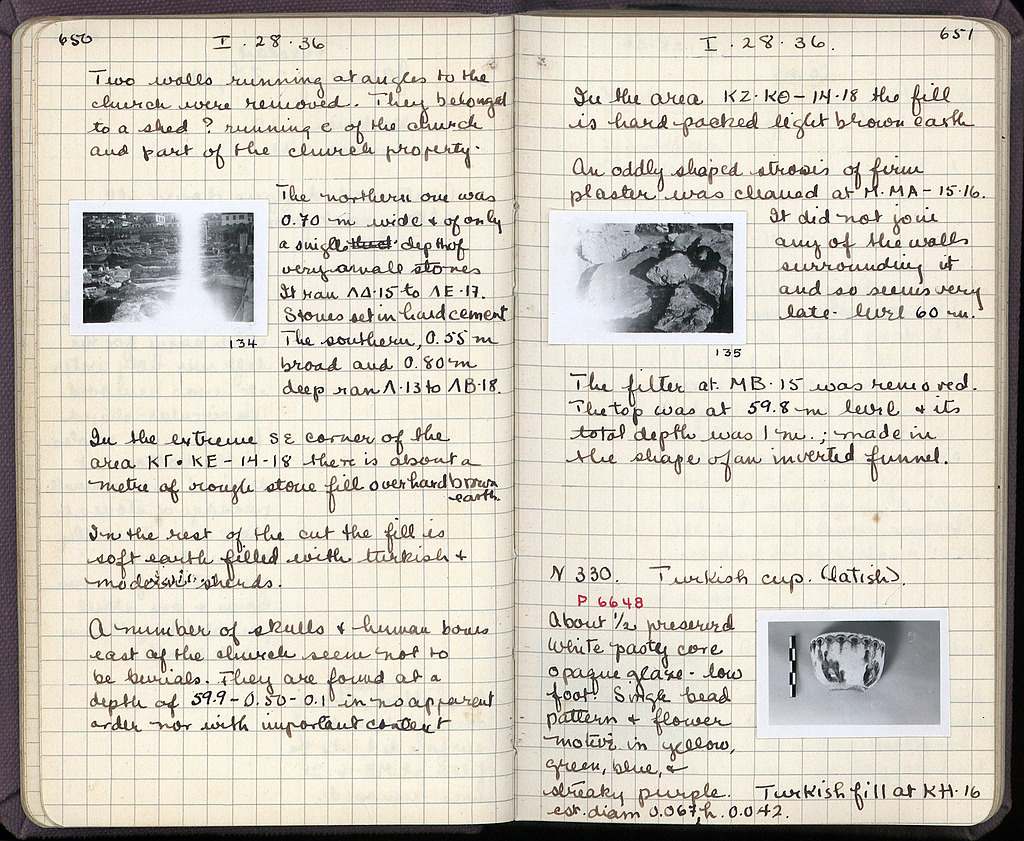 650
I · 28 · 36
Two walls running at angles to the
church were removed. They belonged
to a shed? running E of the church
and part of the church property.
The northern one was
0.70 m wide & of only
a single depth of
very small stones
It ran ΛΔ·15 to ΛE·17.
Stones set in hard cement
The southern, 0.55 m
broad and 0.80 m
deep ran Λ·13 to ΛB·18.
134
In the extreme SE corner of the
area KΓ·KE–14–18 there is about a
metre of rough stone fill over hard brown
earth.
In the rest of the cut the fill is
soft earth filled with turkish &
modern sherds.
A number of skulls & human bones
east of the church seem not to
be burials. They are found at a
depth of 59.9–0.50–0.1 in no apparent
order nor with important content
651
I · 28 · 36.
In the area KZ·KΘ–14·18 the fill
is hard packed light brown earth
An oddly shaped strosis of firm
plaster was cleaned at M·MA–15·16.
It did not join
any of the walls
surrounding it
and so seems very
late. level 60 m.
135
The filter at MB·15 was removed.
The top was at 59.8 m level & its
total depth was 1 m.; made in
the shape of an inverted funnel.
N 330. Turkish cup. (latish).
P 6648
About 1/2 preserved
white pasty core
opaque glaze – low
foot. Single bead
pattern & flower
motive in yellow,
green, blue, &
streaky purple. Turkish fill at KH·16
est. diam 0.067, h. 0.042.